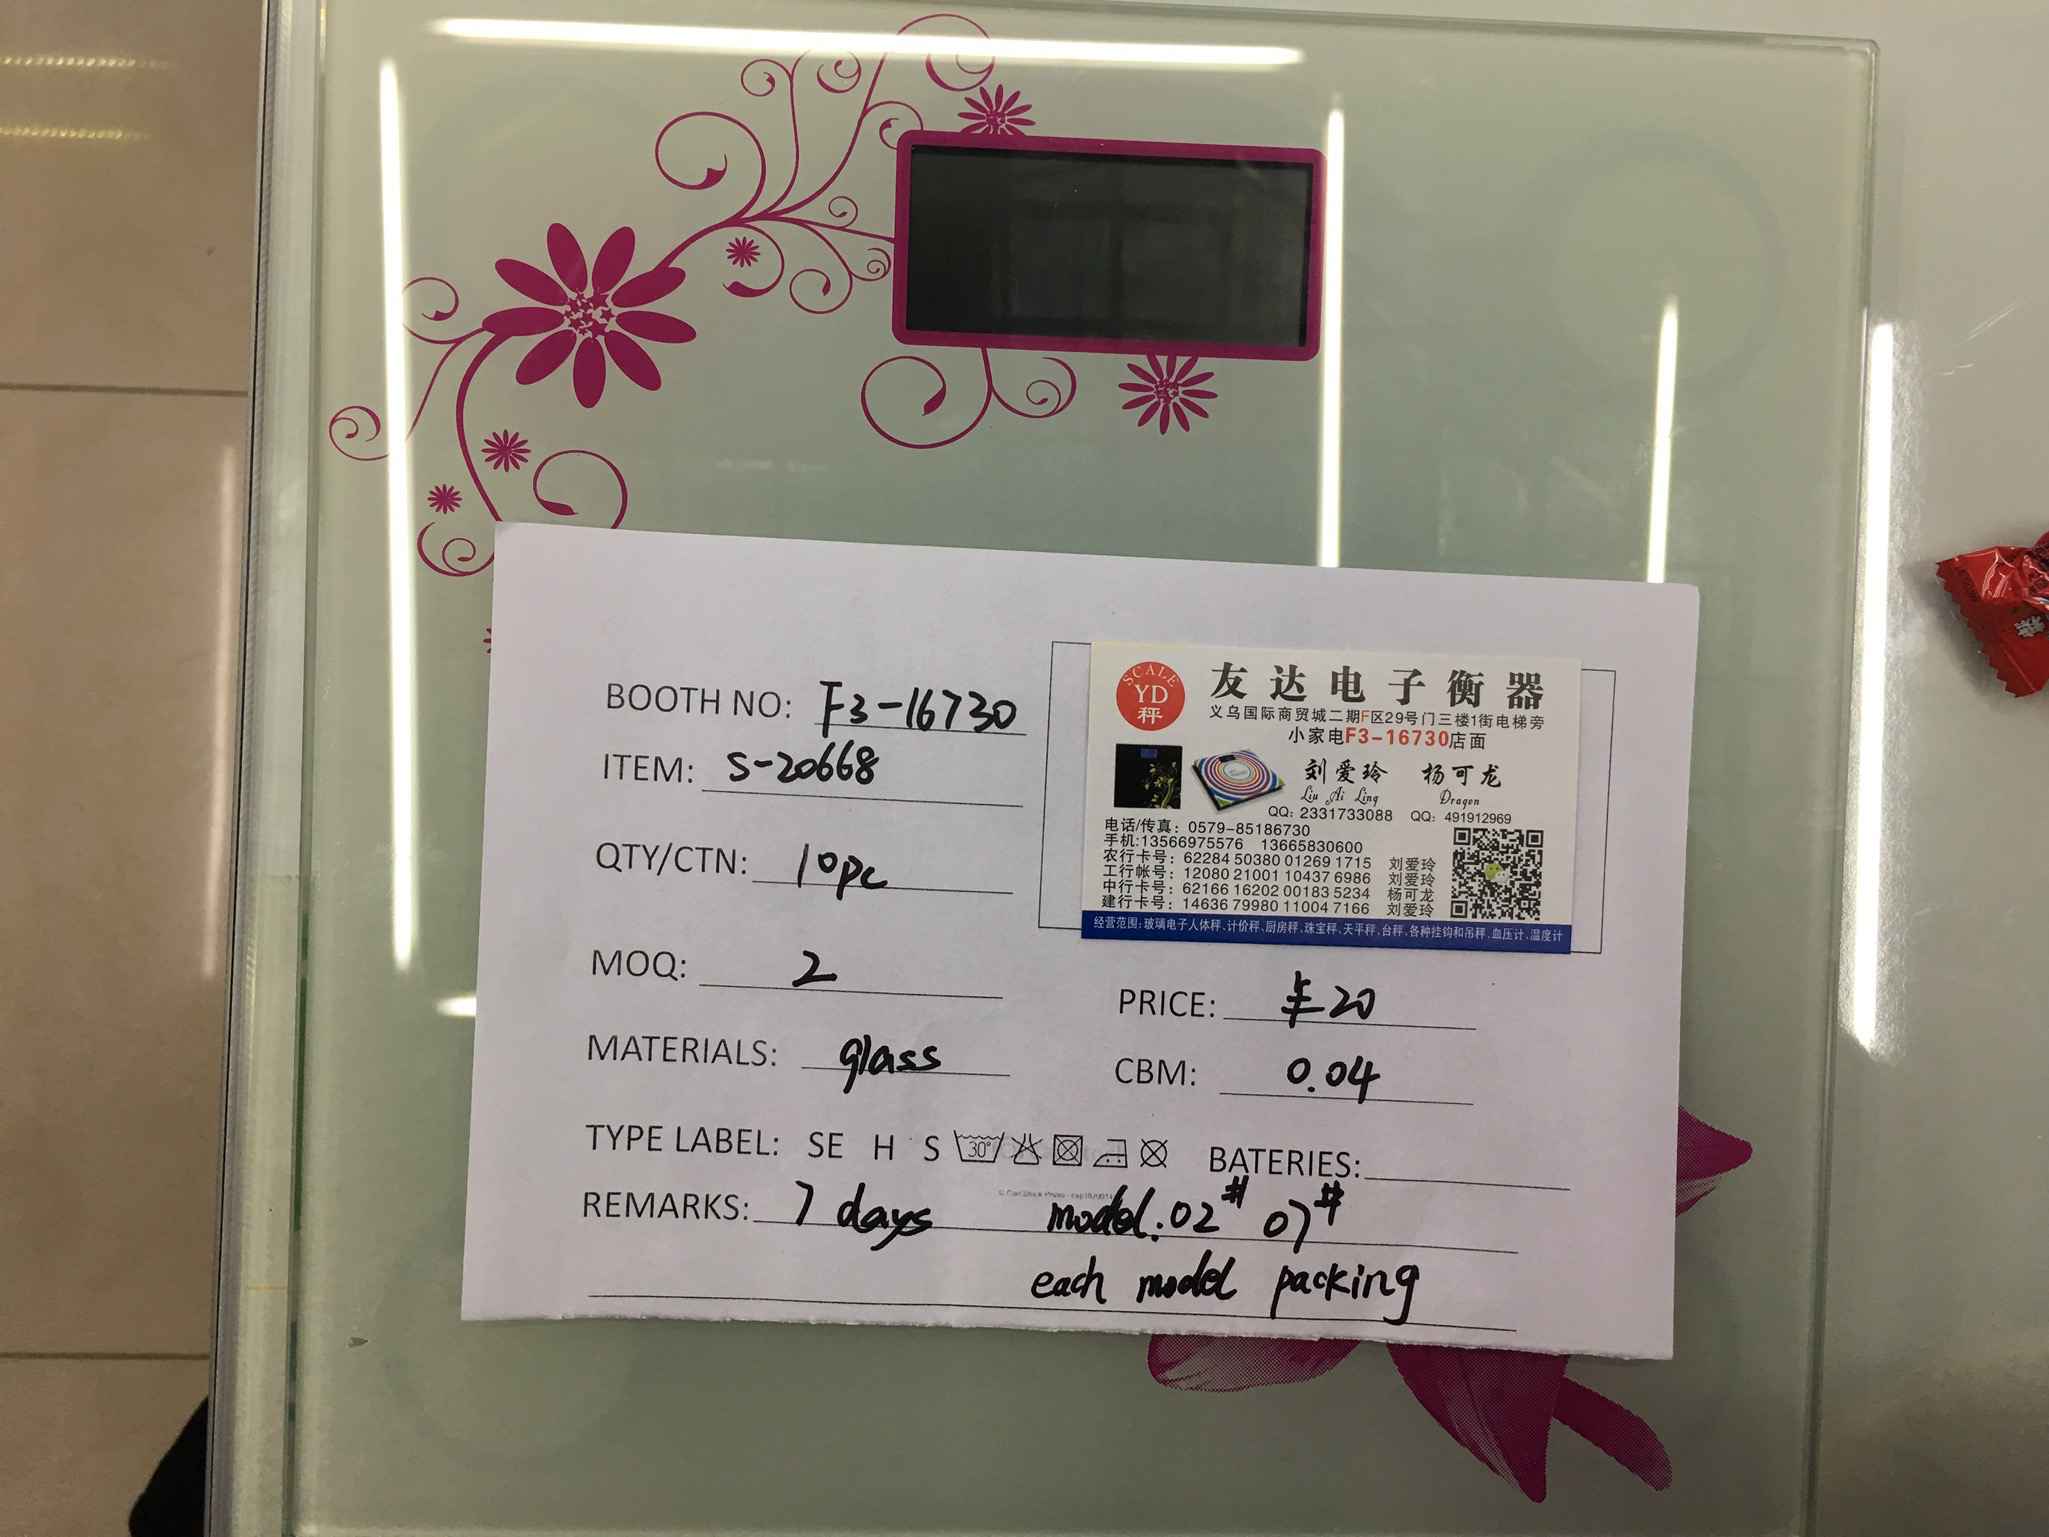 BOOTH NO: F3-16730
ITEM: S-20668
QTY/CTN: 10pc
MOQ: 2
MATERIALS: glass
SCALE
YD
秤
友达电子衡器
义乌国际商贸城二期F区29号门三楼1街电梯旁
小家电F3-16730店面
刘爱玲 杨可龙
Liu Ai Ling Dragon
QQ: 2331733088 QQ: 491912969
电话/传真: 0579-85186730
手机:13566975576 13665830600
农行卡号: 62284 50380 01269 1715 刘爱玲
工行帐号: 12080 21001 10437 6986 刘爱玲
中行卡号: 62166 16202 00183 5234 杨可龙
建行卡号: 14636 79980 11004 7166 刘爱玲
经营范围:玻璃电子人体秤、计价秤、厨房秤、珠宝秤、天平秤、台秤、各种挂钩和吊秤、血压计、温度计
PRICE: ¥20
CBM: 0.04
TYPE LABEL: SE H S 30° BATERIES:
REMARKS: 7 days model.02# 07#
each model packing